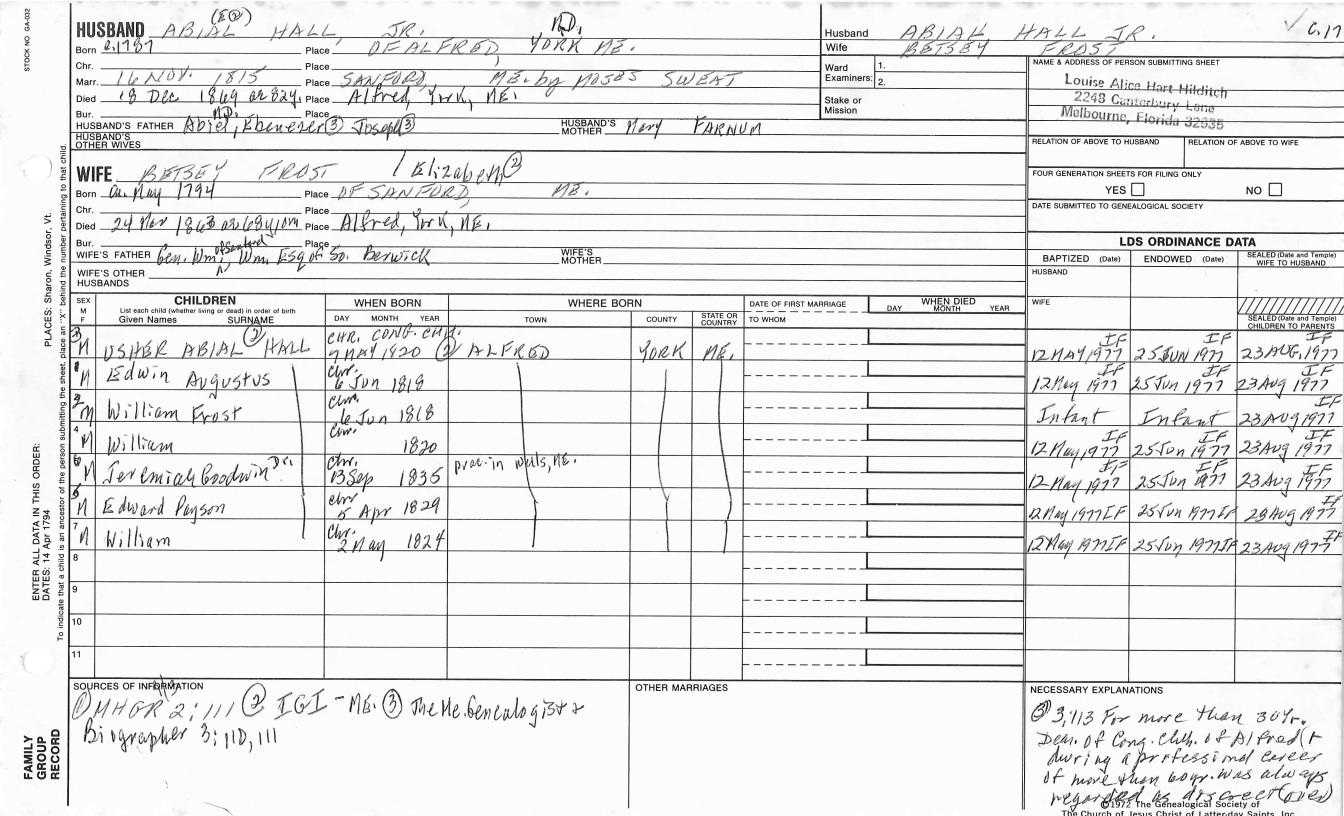 STOCK NO GA-032
(E②)
HUSBAND ABIAL HALL, JR. M.D.
Born c. 1787 Place OF ALFRED, YORK ME.
Chr. Place
Marr. 16 NOV. 1815 Place SANFORD, ME. by MOSES SWEAT
Died 18 Dec 1869 or 82y. Place Alfred, York, ME.
Bur. Place
HUSBAND'S FATHER Abiel, M.D. Ebenezer③ Joseph③ HUSBAND'S MOTHER Mary FARNUM
HUSBAND'S OTHER WIVES
WIFE BETSEY FROST / Elizabeth②
Born May 1794 Place OF SANFORD, ME.
Chr. Place
Died 24 Mar 1863 Place Alfred, York, ME.
Bur. Place
WIFE'S FATHER Gen. Wm. of Sanford, Wm. Esq of So. Berwick WIFE'S MOTHER
WIFE'S OTHER HUSBANDS
Husband ABIAL HALL JR.
Wife BETSEY FROST
Ward Examiners: 1.
2.
Stake or Mission
NAME & ADDRESS OF PERSON SUBMITTING SHEET
Louise Alice Hart Hilditch
2249 Canterbury Lane
Melbourne, Florida 32935
RELATION OF ABOVE TO HUSBAND RELATION OF ABOVE TO WIFE
FOUR GENERATION SHEETS FOR FILING ONLY
YES NO
DATE SUBMITTED TO GENEALOGICAL SOCIETY
LDS ORDINANCE DATA
BAPTIZED (Date) ENDOWED (Date) SEALED (Date and Temple) WIFE TO HUSBAND
HUSBAND
WIFE
SEALED (Date and Temple) CHILDREN TO PARENTS
SEX M F CHILDREN List each child (whether living or dead) in order of birth Given Names SURNAME WHEN BORN DAY MONTH YEAR WHERE BORN TOWN COUNTY STATE OR COUNTRY DATE OF FIRST MARRIAGE TO WHOM WHEN DIED DAY MONTH YEAR
3 M USHER ABIAL② HALL CHR. CONG. CHH. 7 MAY 1820 ② ALFRED YORK ME. 12 MAY 1977 IF 25 JUN 1977 IF 23 AUG. 1977 IF
1 M Edwin Augustus chr. 6 Jun 1818 12 May 1977 IF 25 Jun 1977 IF 23 Aug 1977 IF
2 M William Frost chr. 6 Jun 1818 Infant Infant 23 Aug 1977 IF
4 M William chr. 1820 12 May 1977 IF 25 Jun 1977 IF 23 Aug 1977 IF
M Jeremiah Goodwin Dr. chr. 13 Sep 1835 prac. in Wells, ME. 12 May 1977 IF 25 Jun 1977 IF 23 Aug 1977 IF
M Edward Payson chr 5 Apr 1829 12 May 1977 IF 25 Jun 1977 IF 23 Aug 1977 IF
7 M William chr. 2 May 1824 12 May 1977 IF 25 Jun 1977 IF 23 Aug 1977 IF
8
9
10
11
SOURCES OF INFORMATION
① MHGR 2:111 ② IGI - ME. ③ The Me. Genealogist &
Biographer 3:110, 111
OTHER MARRIAGES
NECESSARY EXPLANATIONS
③ 3,113 For more than 30 yr.
Dea. of Cong. Chh. of Alfred (&
during a professional career
of more than 60 yr. was always
regarded as discreet (over)
©1972 The Genealogical Society of
The Church of Jesus Christ of Latter-day Saints, Inc.
ENTER ALL DATA IN THIS ORDER:
DATES: 14 Apr 1794
PLACES: Sharon, Windsor, Vt.
To indicate that a child is an ancestor of the person submitting the sheet, place an "X" behind the number pertaining to that child.
FAMILY GROUP RECORD